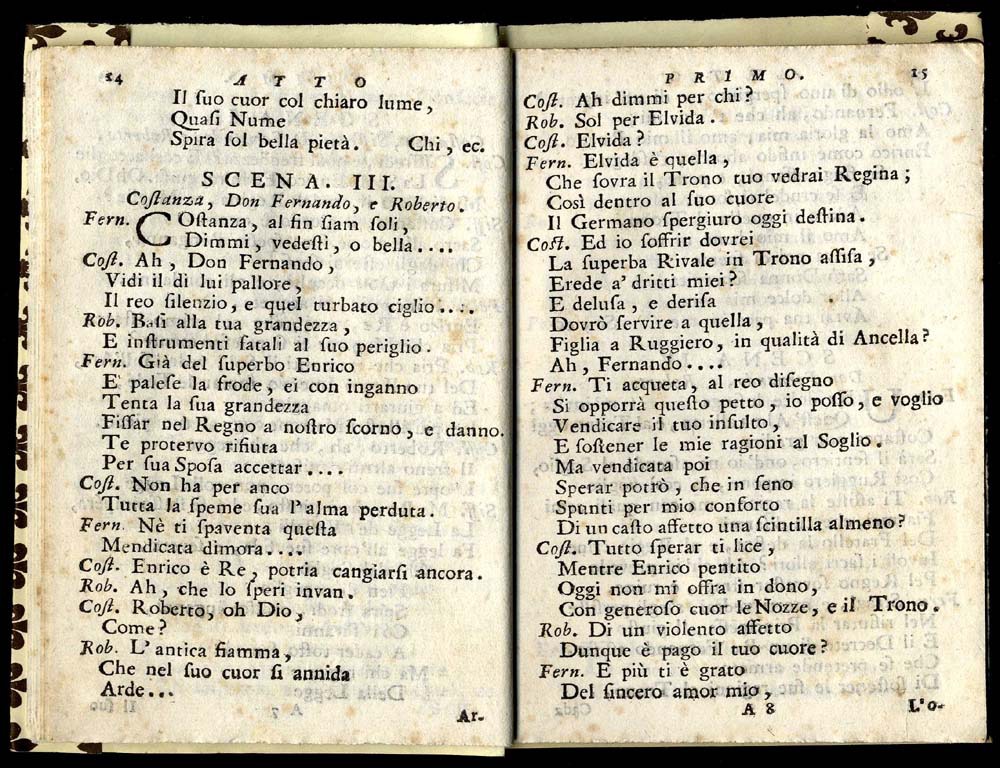 14 ATTO
Il ſuo cuor col chiaro lume,
Quaſi Nume
Spira ſol bella pietà. Chi, ec.
SCENA. III.
Coſtanza, Don Fernando, e Roberto.
Fern. COſtanza, al fin ſiam ſoli,
Dimmi, vedeſti, o bella....
Coſt. Ah, Don Fernando,
Vidi il di lui pallore,
Il reo ſilenzio, e quel turbato ciglio....
Rob. Baſi alla tua grandezza,
E inſtrumenti fatali al ſuo periglio.
Fern. Già del ſuperbo Enrico
E' paleſe la frode, ei con inganno
Tenta la ſua grandezza
Fiſſar nel Regno a noſtro ſcorno, e danno.
Te protervo rifiuta
Per ſua Spoſa accettar....
Coſt. Non ha per anco
Tutta la ſpeme ſua l'alma perduta.
Fern. Nè ti ſpaventa queſta
Mendicata dimora....
Coſt. Enrico è Re, potria cangiarſi ancora.
Rob. Ah, che lo ſperi invan.
Coſt. Roberto, oh Dio,
Come?
Rob. L'antica fiamma,
Che nel ſuo cuor ſi annida
Arde...
A 7 Ar-
PRIMO. 15
Coſt. Ah dimmi per chi?
Rob. Sol per Elvida.
Coſt. Elvida?
Fern. Elvida è quella,
Che ſovra il Trono tuo vedrai Regina;
Così dentro al ſuo cuore
Il Germano ſpergiuro oggi deſtina.
Coſt. Ed io ſoffrir dovrei
La ſuperba Rivale in Trono aſſiſa,
Erede a' dritti miei?
E deluſa, e deriſa
Dovrò ſervire a quella,
Figlia a Ruggiero, in qualità di Ancella?
Ah, Fernando....
Fern. Ti acqueta, al reo diſegno
Si opporrà queſto petto, io poſſo, e voglio
Vendicare il tuo inſulto,
E ſoſtener le mie ragioni al Soglio.
Ma vendicata poi
Sperar potrò, che in ſeno
Spunti per mio conforto
Di un caſto affetto una ſcintilla almeno?
Coſt. Tutto ſperar ti lice,
Mentre Enrico pentito
Oggi non mi offra in dono,
Con generoſo cuor le Nozze, e il Trono.
Rob. Di un violento affetto
Dunque è pago il tuo cuore?
Fern. E più ti è grato
Del ſincero amor mio,
A 8 L'o-